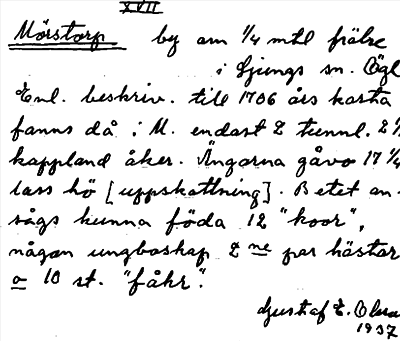 XVII
Mörstorp by om 1/4 mtl frälse
i Ljungs sn. Ögl
Enl. beskriv. till 1706 års karta
fanns då i M. endast 2 tunnl. 2 1/
kappland åker. Ängarna gåvo 17 1/4
lass hö [uppskattning]. Betet an-
sågs kunna föda 12 "koor",
någon ungboskap 2 ne par hästar
o 10 st. "fåhr".
Gustaf E. Olsson
1937